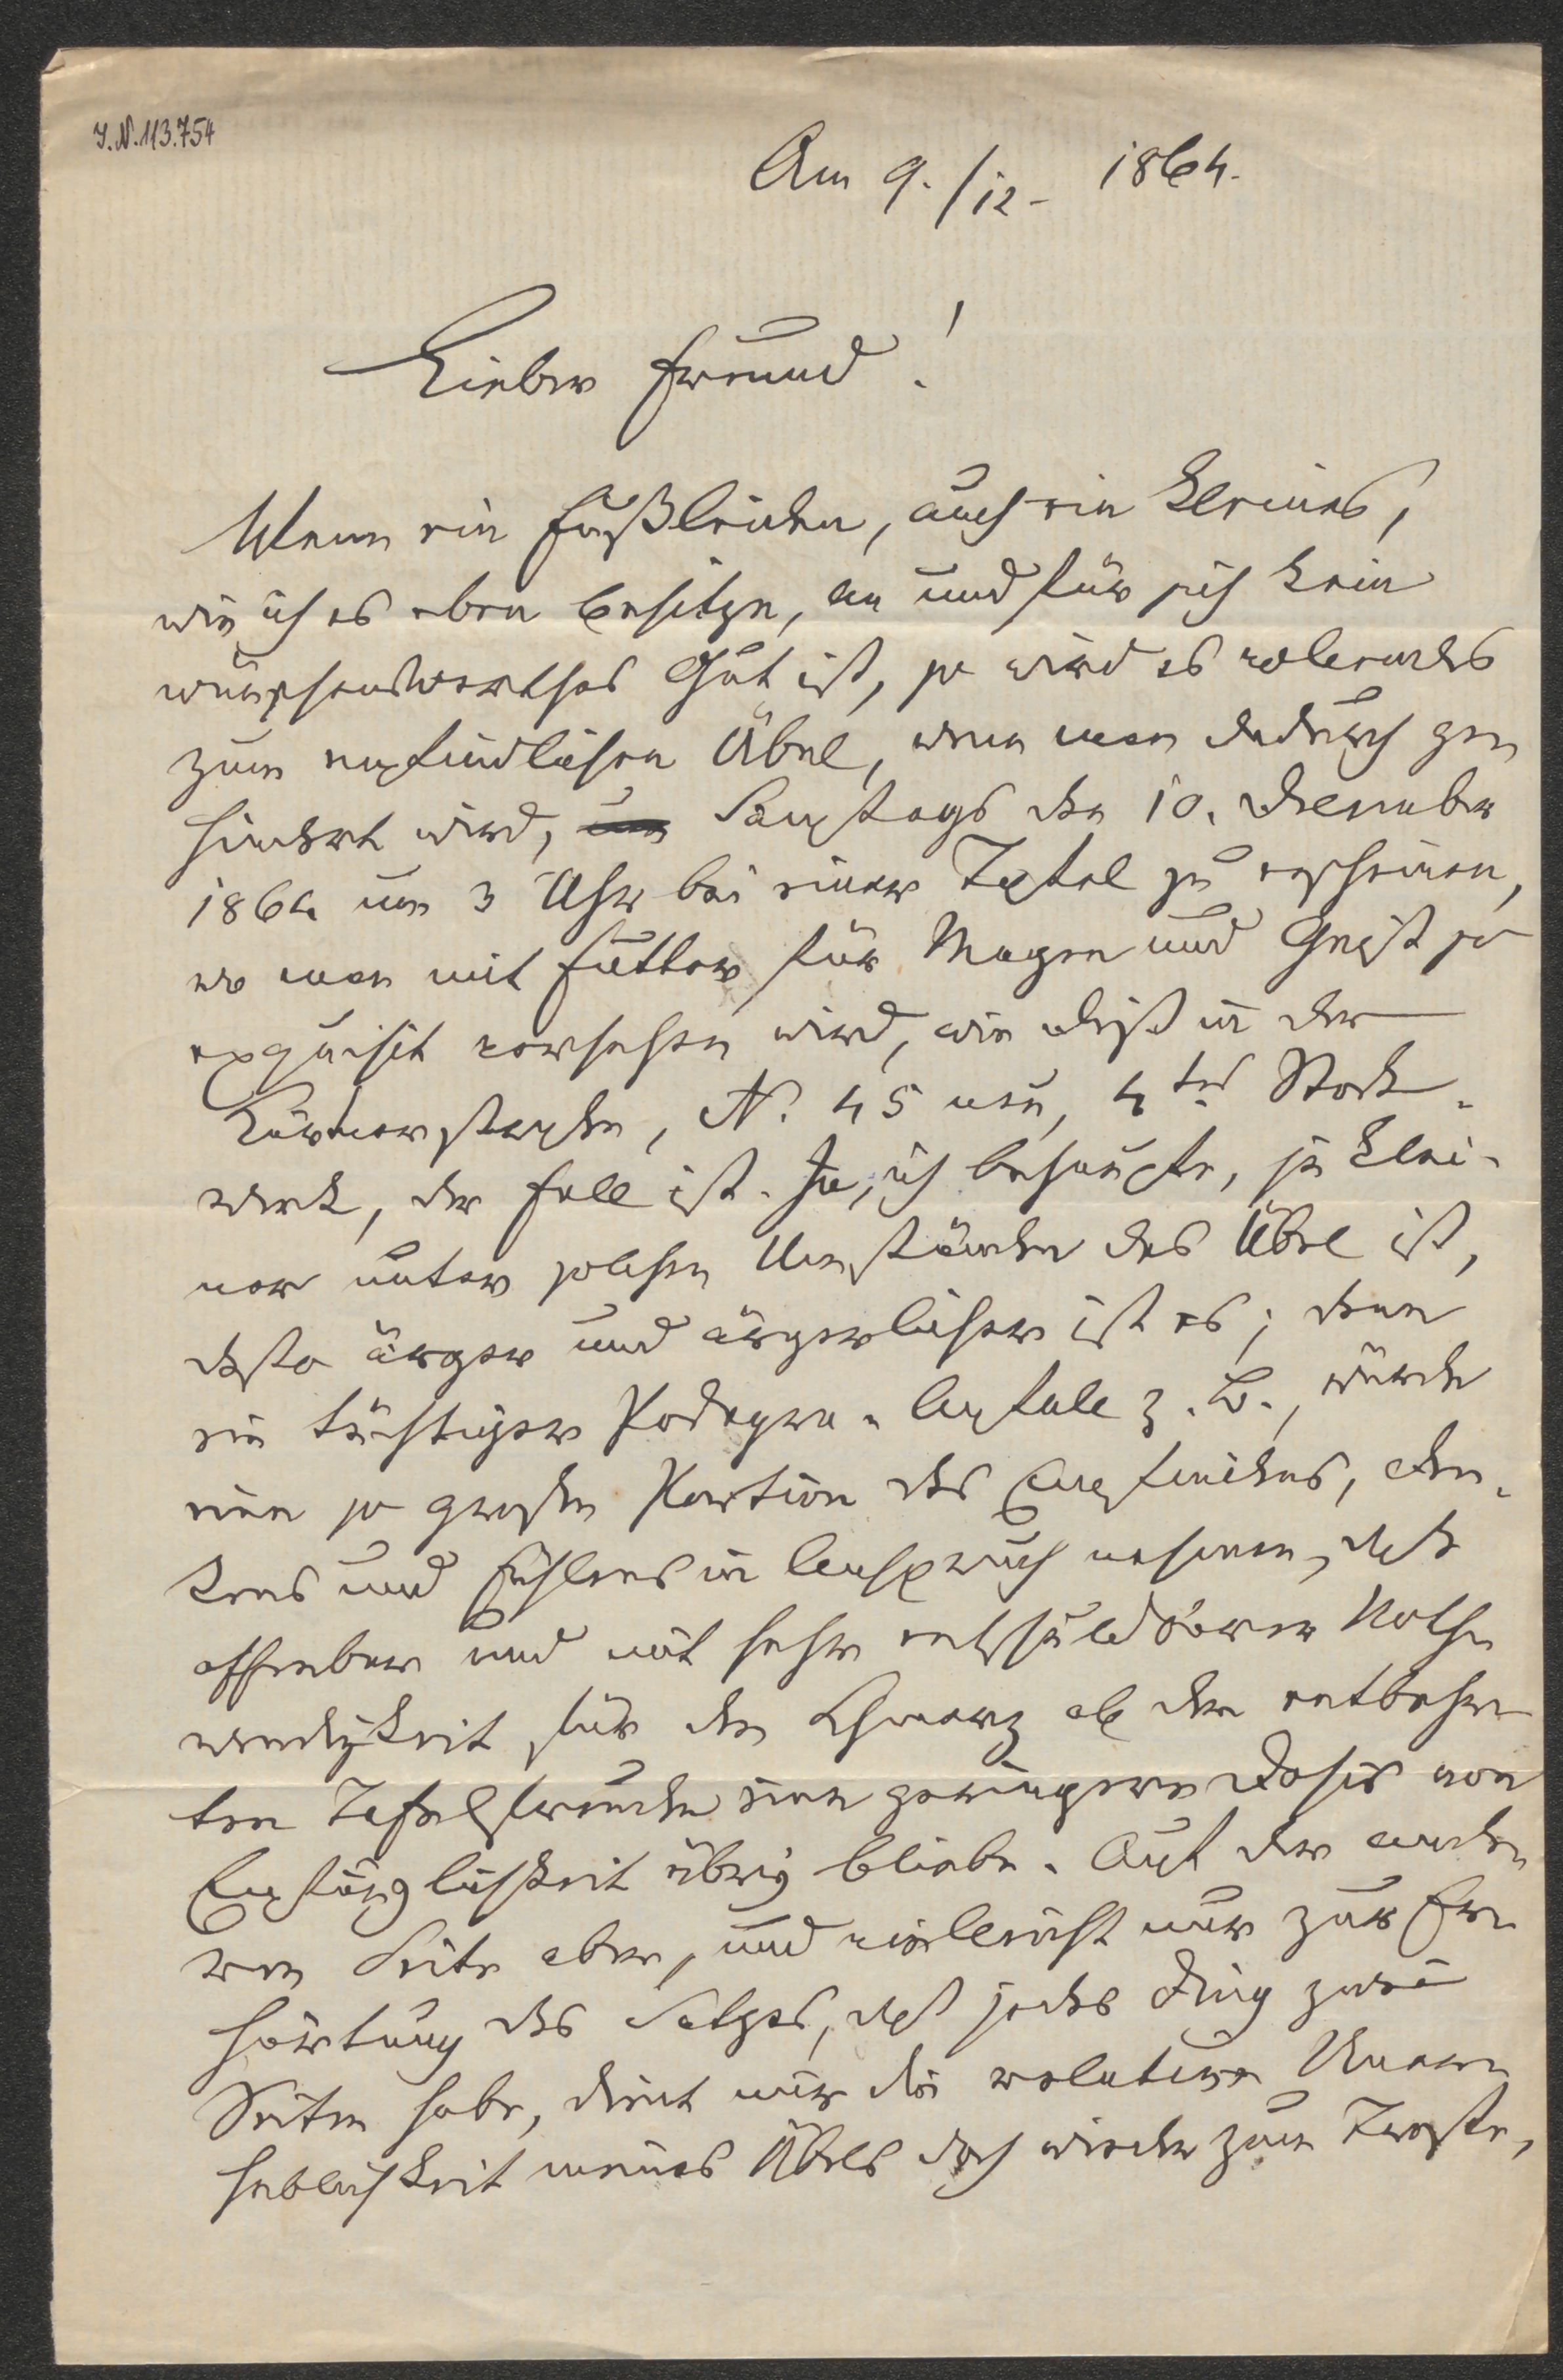 I.N.113.754
Am 9./12- 1864.
Lieber Freund!
Wenn ein Fußleiden, auch ein kleines,
wie ich es eben besitze, an und für sich kein
wünschenswerthes Gut ist, so wird es vollends
zum empfindlichen Übel, wenn man dadurch ge-
hindert wird, Samstags den 10. Dezember
1864 um 3 Uhr bei einer Tafel zu erscheinen,
wo man mit Futter für Magen und Geist so
exquisit versehen wird, wie dieß in der
Kärtnerstraße, N. 45 neu, 4ter Stock-
werk, der Fall ist. Ja, ich behaupte, je klei-
ner unter solchen Umständen das Übel ist,
desto ärger und ärgerlicher ist es; denn
ein tüchtiger Podagra-Anfall z. B., würde
eine so große Portion des Empfindens, Den-
kens und Fühlens in Anspruch nehmen, daß
offenbar und mit sehr entschuldbarer Noth-
wendigkeit für den Schmerz ob der entbehr-
ten Tafelfreuden eine geringere Dosis von
Empfänglichkeit übrig bliebe. Auf der ande-
ren Seite aber, und vielleicht nur zur Er-
härtung des Satzes, daß jedes Ding zwei
Seiten habe, dient mir die relative Uner-
heblichkeit meines Übels doch wieder zum Troste,